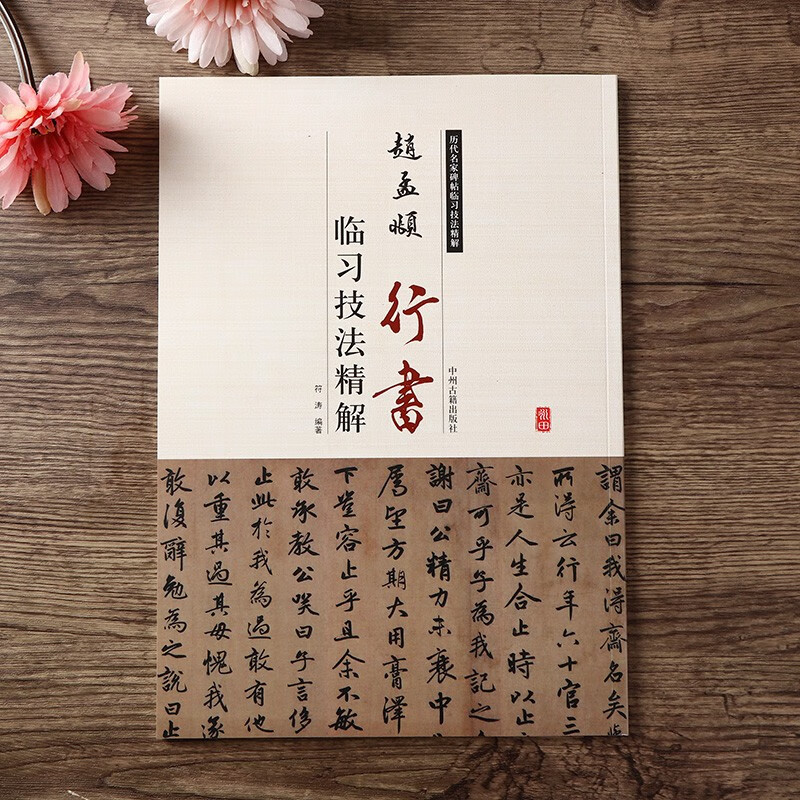 历代名家碑帖临习技法精解
中州古籍出版社
趙孟頫
行書
临习技法精解
符涛 编著
謂余曰我得齋名矣
所得云行年六十官三
亦是人生合止時以止
齋可乎子為我記之
謝曰公精力未衰中
屬望方期大用膏澤
下豈容止乎且余不敏
敢承教公咲曰子言侈
止此於我為過敢有他
以重其過其毋愧我遂
敢復辭勉為之說曰止